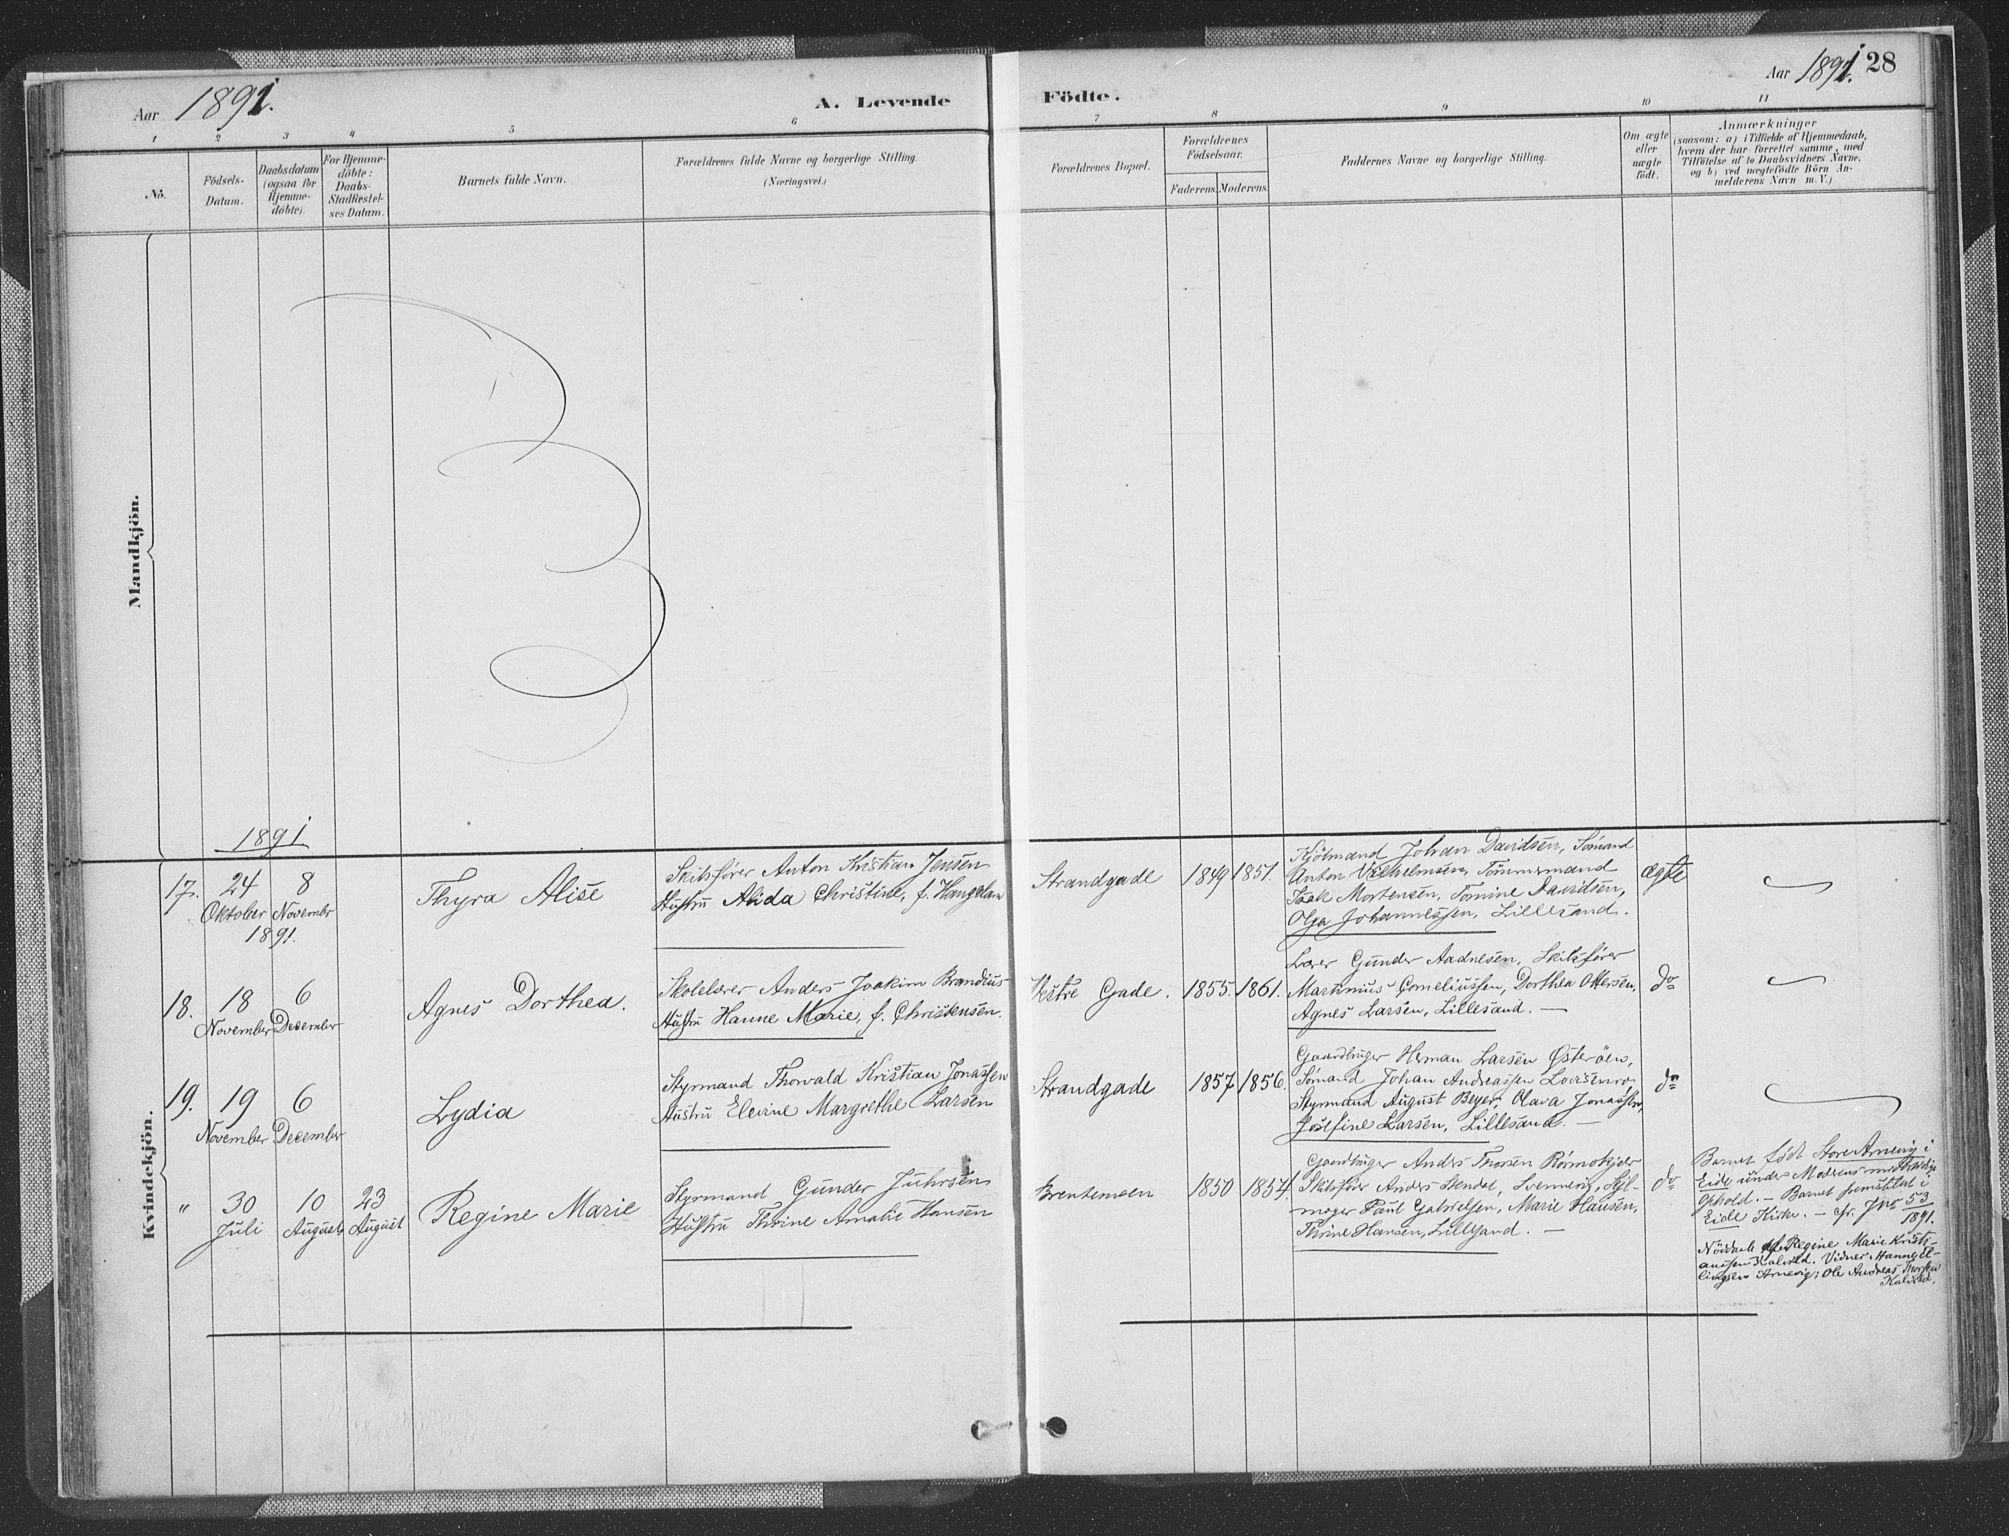 Aar 1891.
A. Levende
Födte.
Aar 1891.
28
1 2 3 4 5 6 7 8 9 10 11
No.
Födsels-
Datum.
Daabsdatum
(ogsaa for
Hjemme-
döbte).
For Hjemme-
döbte:
Daabs-
Stadfæstel-
ses Datum.
Barnets fulde Navn.
Forældrenes fulde Navne og borgerlige Stilling.
(Næringsvei.)
Forældrenes Bopæl.
Forældrenes
Födselsaar.
Faderens. Moderens.
Faddernes Navne og borgerlige Stilling.
Om ægte
eller
uægte
födt.
Anmærkninger
(saasom: a) i Tilfælde af Hjemmedaab,
hvem der har forrettet samme, med
Tilföielse af to Daabsvidners Navne,
og b) ved uægtefödte Börn An-
melderens Navn m. V.)
Mandkjön.
Kvindekjön.
1891
17. 24 8
Oktober November
1891.
Thyra Alise
Skibsfører Anton Kristian Jensen
Hustru Alida Christine, f.
Strandgade
1849 1851.
Johan Davidsen, Sømand
Anton Vilhelmsen, Tømmermand
Isak Mortensen, Tomine Davidsen,
Olga Johannessen, Lillesand.
ægte
18. 18 6
November December
Agnes Dorthea.
Skolelærer Anders Joakim Brandius
Hustru Hanne Marie, f. Christensen.
Vestre Gade.
1855. 1861.
Lærer Gunder Aadnesen, Skibsfører
Martinius Corneliussen, Dorthea Ottersen,
Agnes Larsen, Lillesand. —
do
19. 19 6
November December
Lydia
Styrmand Thorvald Kristian Jonassen
Hustru Elevine Margrethe Larsen
Strandgade
1857 1856.
Gaardbruger Herman Larsen Østerøen,
Sømand Johan Andreassen
Styrmand August Beyer, Olava Jonassen,
Josefine Larsen, Lillesand. —
do
" 30 10 23
Juli August August
Regine Marie
Styrmand Gunder Juhrsen
Hustru Thrine Amalie Hansen
Brentemoen
1850 1857.
Gaardbruger Anders Thorsen
Skibsfører Anders Stendal,
Paul Gabrielsen, Marie Hansen,
Thrine Hansen, Lillesand. —
do
Barnet født Store Arnevig i
Eide under Moderens
Ophold. — Barnet fremstillet i
Eide Kirke. — cfr. Jns 53/1891.
Nöddøbt af Regine Marie Kristi-
anssen Kalvild. Vidner: Hanna El-
lingsen Arnevig; Ole Andreas Thorsen
Kalvild.